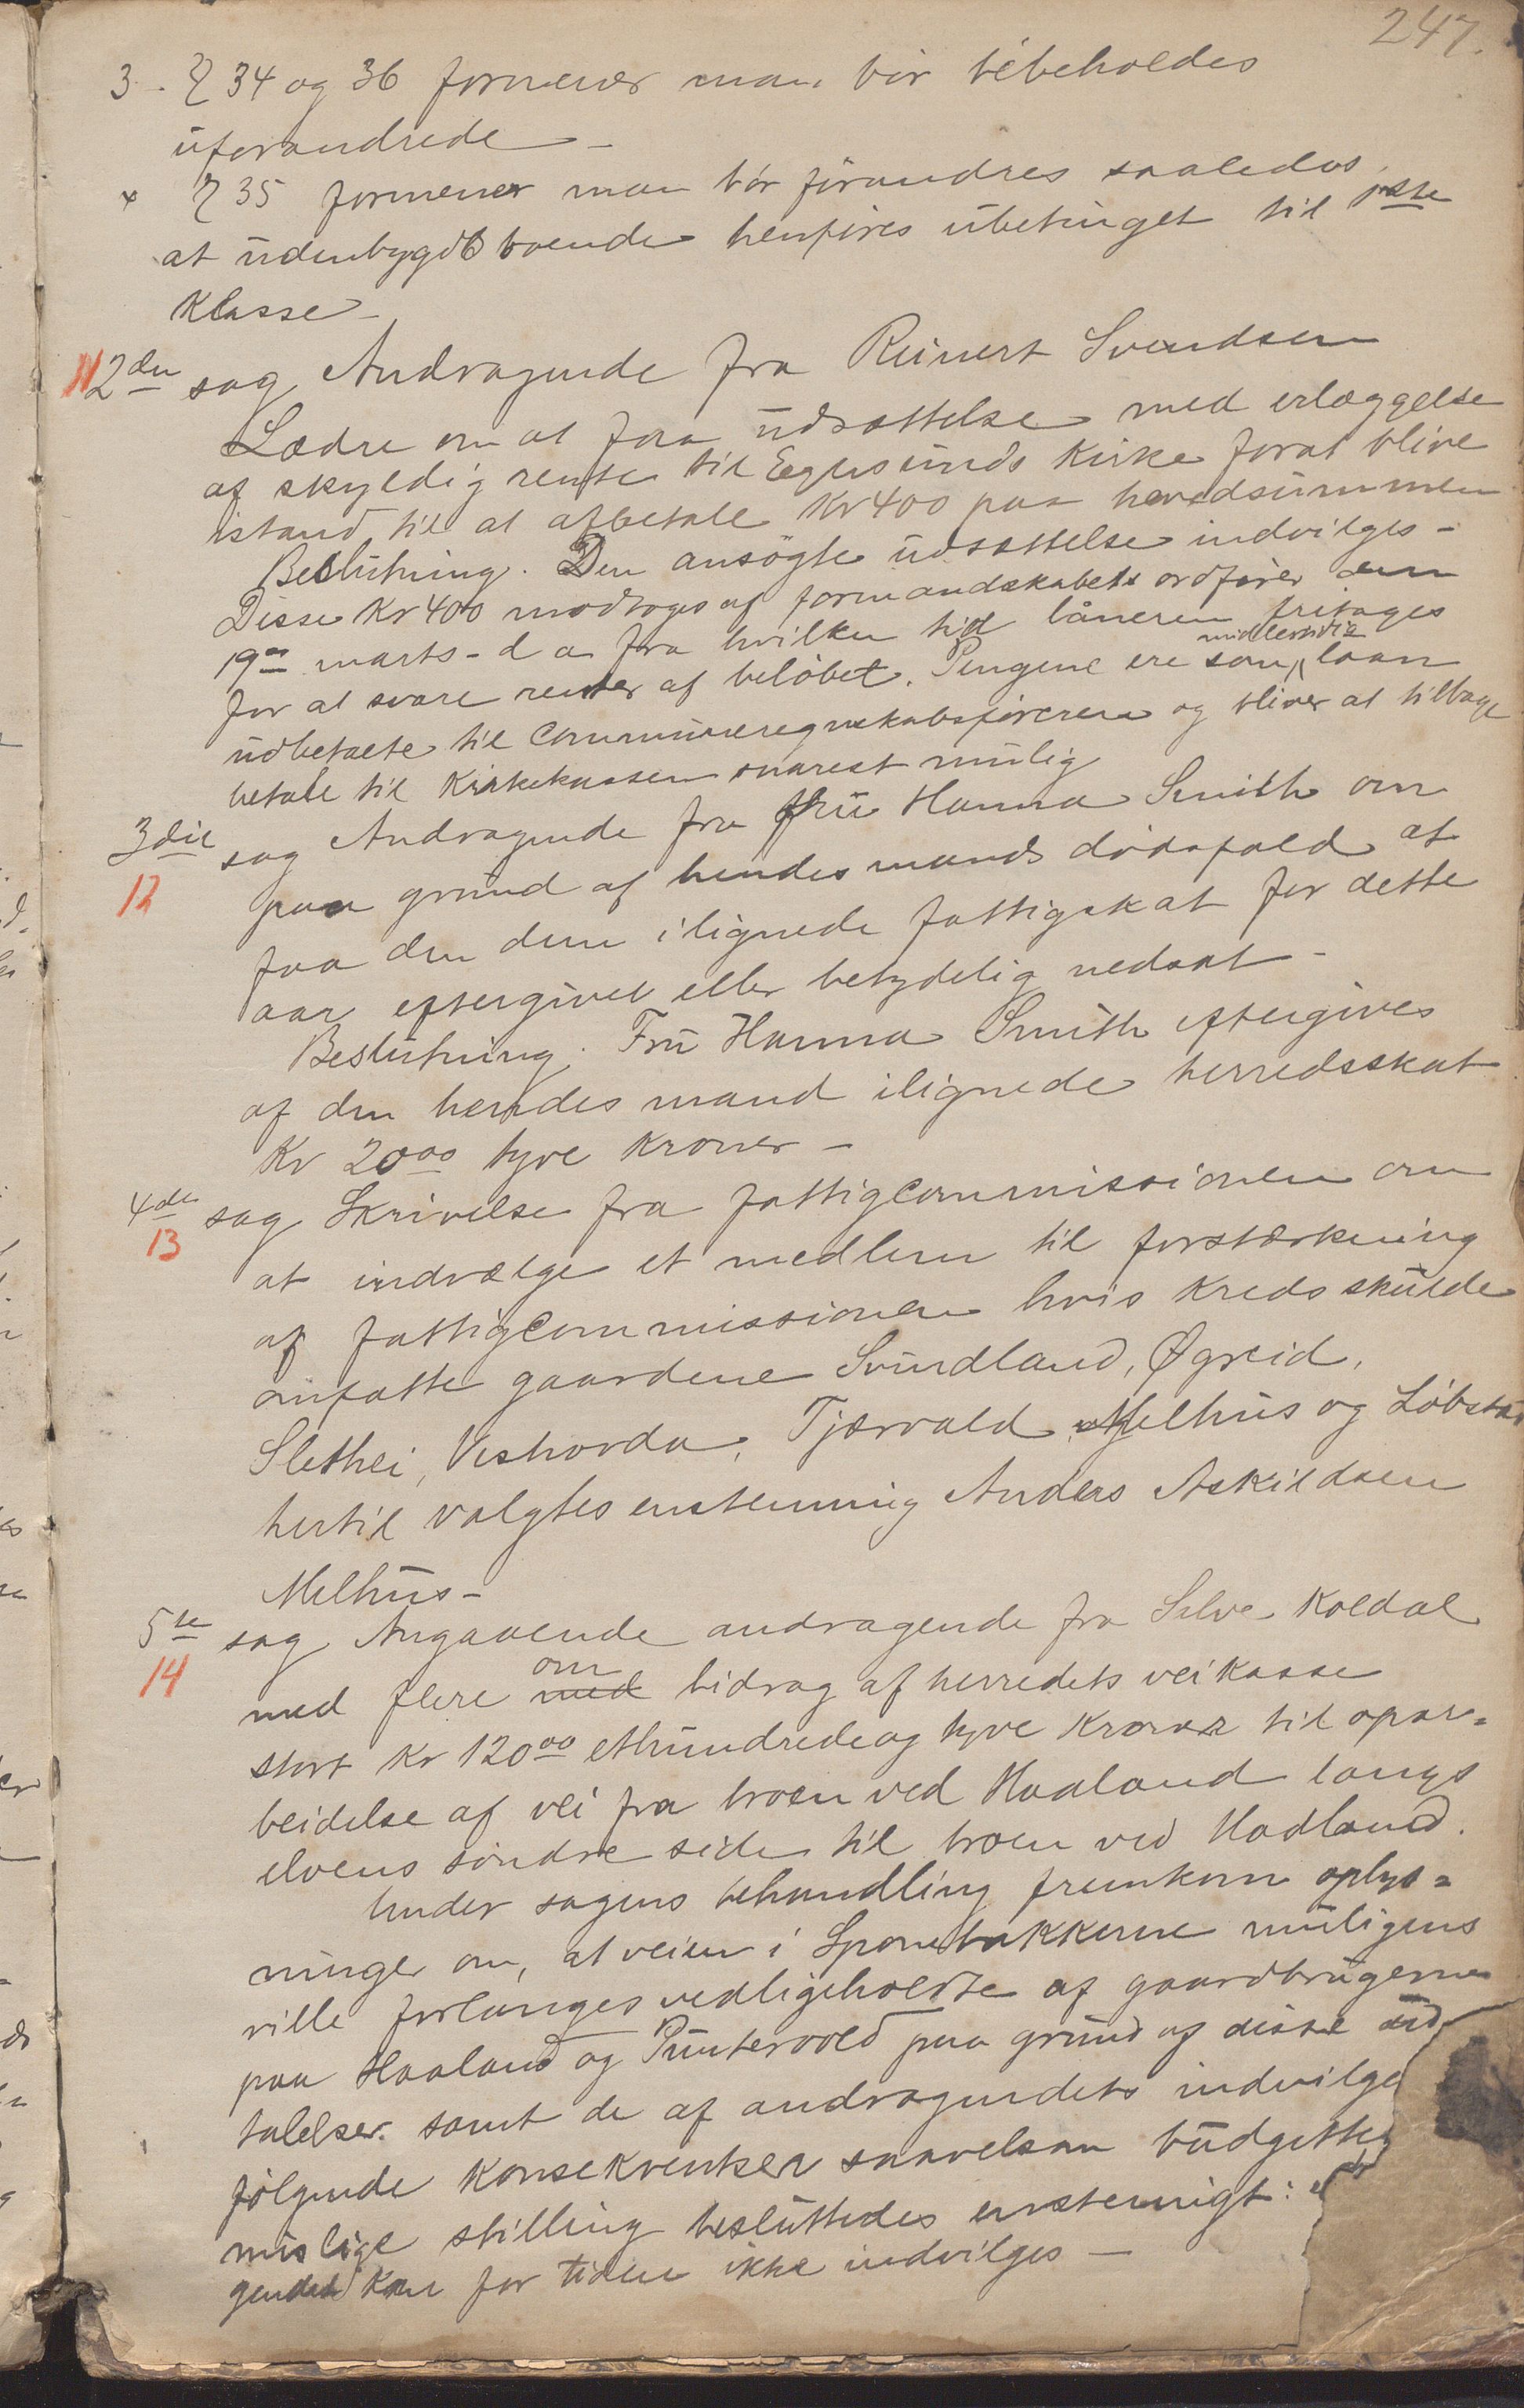 247.
3 - § 34 og 36 formener man bör bibeholdes
uforandrede -
x § 35 formener man bör forandres saaledes
at udenbygds boende henföres ubetinget til 1ste
Klasse -
11 2den sag Andragende fra Reinert Svendsen
Lædre om at faa udsættelse med erlæggelse
af skyldig rente til Egersunds Kirke forat blive
istand til at afbetale Kr 400 paa hovedsummen
Beslutning. Den ansögte udsættelse indvilges -
Disse Kr 400 modtoges af formandskabets ordförer den
19de marts - d a fra hvilken tid låneren fritages
for at svare renter af belöbet. Pengene ere som midlertidig laan
udbetalte til Communeregnskabsföreren og bliver at tilbage
betale til Kirkekassen snarest mulig
3die sag Andragende fra fru Hanna Smith om
12 paa grund af hendes mands dödsfald at
faa den dem ilignede fattigskat for dette
aar eftergivet eller betydelig nedsat -
Beslutning. Fru Hanna Smith eftergives
af den hendes mand ilignede herredsskat
Kr 20 00 tyve Kroner -
4de sag Skrivelse fra fattigcommissionen om
13 at indvælge et medlem til forstærkning
af fattigcommissionen hvis Kreds skulde
omfatte gaardene Svindland, Øgreid,
Slethei, Veshovda, Tjærvald, Mjelhus og Löbstad
hertil valgtes enstemmig Anders Askildsen
Melhus -
5te sag Angaaende andragende fra Salve Koldal
14 med flere med om bidrag af herredets veikasse
stort Kr 120 00 ethundrede og tyve Kroner til opar=
beidelse af vei fra broen ved Haaland langs
elvens söndre side til broen ved Hadland.
Under sagens behandling fremkom oplys=
ninger om, at veien i Sponebakkerne muligens
ville forlanges vedligeholdte af gaardbrugerne
paa Haaland og Puntervold paa grund af disse ud
talelser samt de af andragendets indvilge
fölgende Konsekventser saavelsom budgettets
mislige stilling besluttedes enstemmigt:
gendet Kan for tiden ikke indvilges -